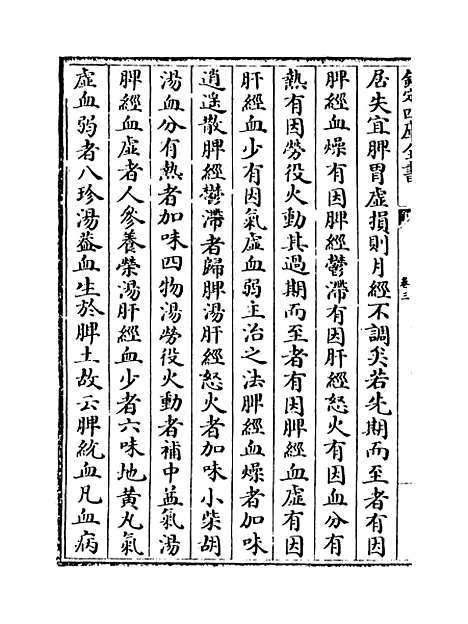 欽定四庫全書
卷三
居失宜脾胃虛損則月經不調矣若先期而至者有因
脾經血燥有因脾經鬱滯有因肝經怒火有因血分有
熱有因勞役火動其過期而至者有因脾經血虛有因
肝經血少有因氣虛血弱主治之法脾經血燥者加味
逍遙散脾經鬱滯者歸脾湯肝經怒火者加味小柴胡
湯血分有熱者加味四物湯勞役火動者補中益氣湯
脾經血虛者人參養榮湯肝經血少者六味地黃丸氣
虛血弱者八珍湯蓋血生於脾土故云脾統血凡血病